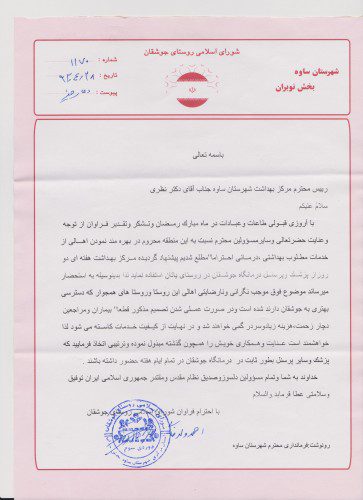 شورای اسلامی روستای جوشقان
شهرستان ساوه
بخش نوبران
شماره : ۱۱۷۰
تاریخ : ۹۳/۴/۲۸
پیوست :
باسمه تعالی
رییس محترم مرکز بهداشت شهرستان ساوه جناب آقای دکتر نظری
سلام علیکم
با آرزوی قبولی طاعات وعبادات در ماه مبارک رمضان وتشکر وتقدیر فراوان از توجه
وعنایت حضرتعالی وسایرمسؤولین محترم نسبت به این منطقه محروم در بهره مند نمودن اهالی از
خدمات مطلوب بهداشتی ،درمانی ،احتراما"مطلع شدیم پیشنهاد گردیده مرکز بهداشت هفته ای دو
روزاز پزشک وپرسنل درمانگاه جوشقان در روستای یاتان استفاده نماید لذا بدینوسیله به استحضار
میرساند موضوع فوق موجب نگرانی ونارضایتی اهالی این روستا وروستا های همجوار که دسترسی
بهتری به جوشقان دارند شده است ودر صورت عملی شدن تصمیم مذکور قطعا" بیماران ومراجعین
دچار زحمت،هزینه زیادوسردر گمی خواهند شد و در نهایت از کیفیت خدمات کاسته می شود لذا
خواهشمند است عنایت وهمکاری خویش را همچون گذشته مبذول نموده وترتیبی اتخاذ فرمایید که
پزشک وسایر پرسنل بطور ثابت در درمانگاه جوشقان در تمام ایام هفته حضور داشته باشند .
خداوند به شما وتمام مسؤولین دلسوزوصدیق نظام مقدس ومقتدر جمهوری اسلامی ایران توفیق
وسلامتی عطا فرماید والسلام
با احترام فراوان شورای اسلامی روستای جوشقان
رونوشت:فرمانداری محترم شهرستان ساوه